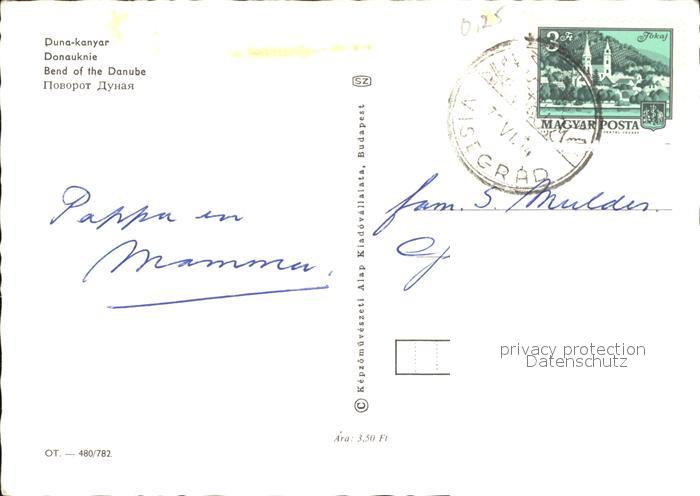 Duna-kanyar
Donauknie
Bend of the Danube
Поворот Дуная
0,25
3 Ft
Tokaj
MAGYAR POSTA
VISEGRÁD
SZ
Pappa en
Mamma.
fam. S. Mulder.
© Képzőművészeti Alap Kiadóvállalata, Budapest
privacy protection
Datenschutz
Ára: 3,50 Ft
OT. — 480/782.